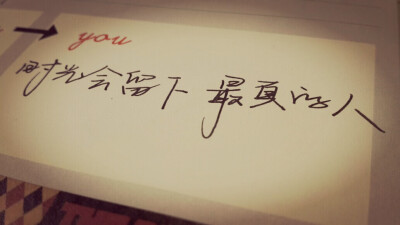 you
时光会留下最真的人